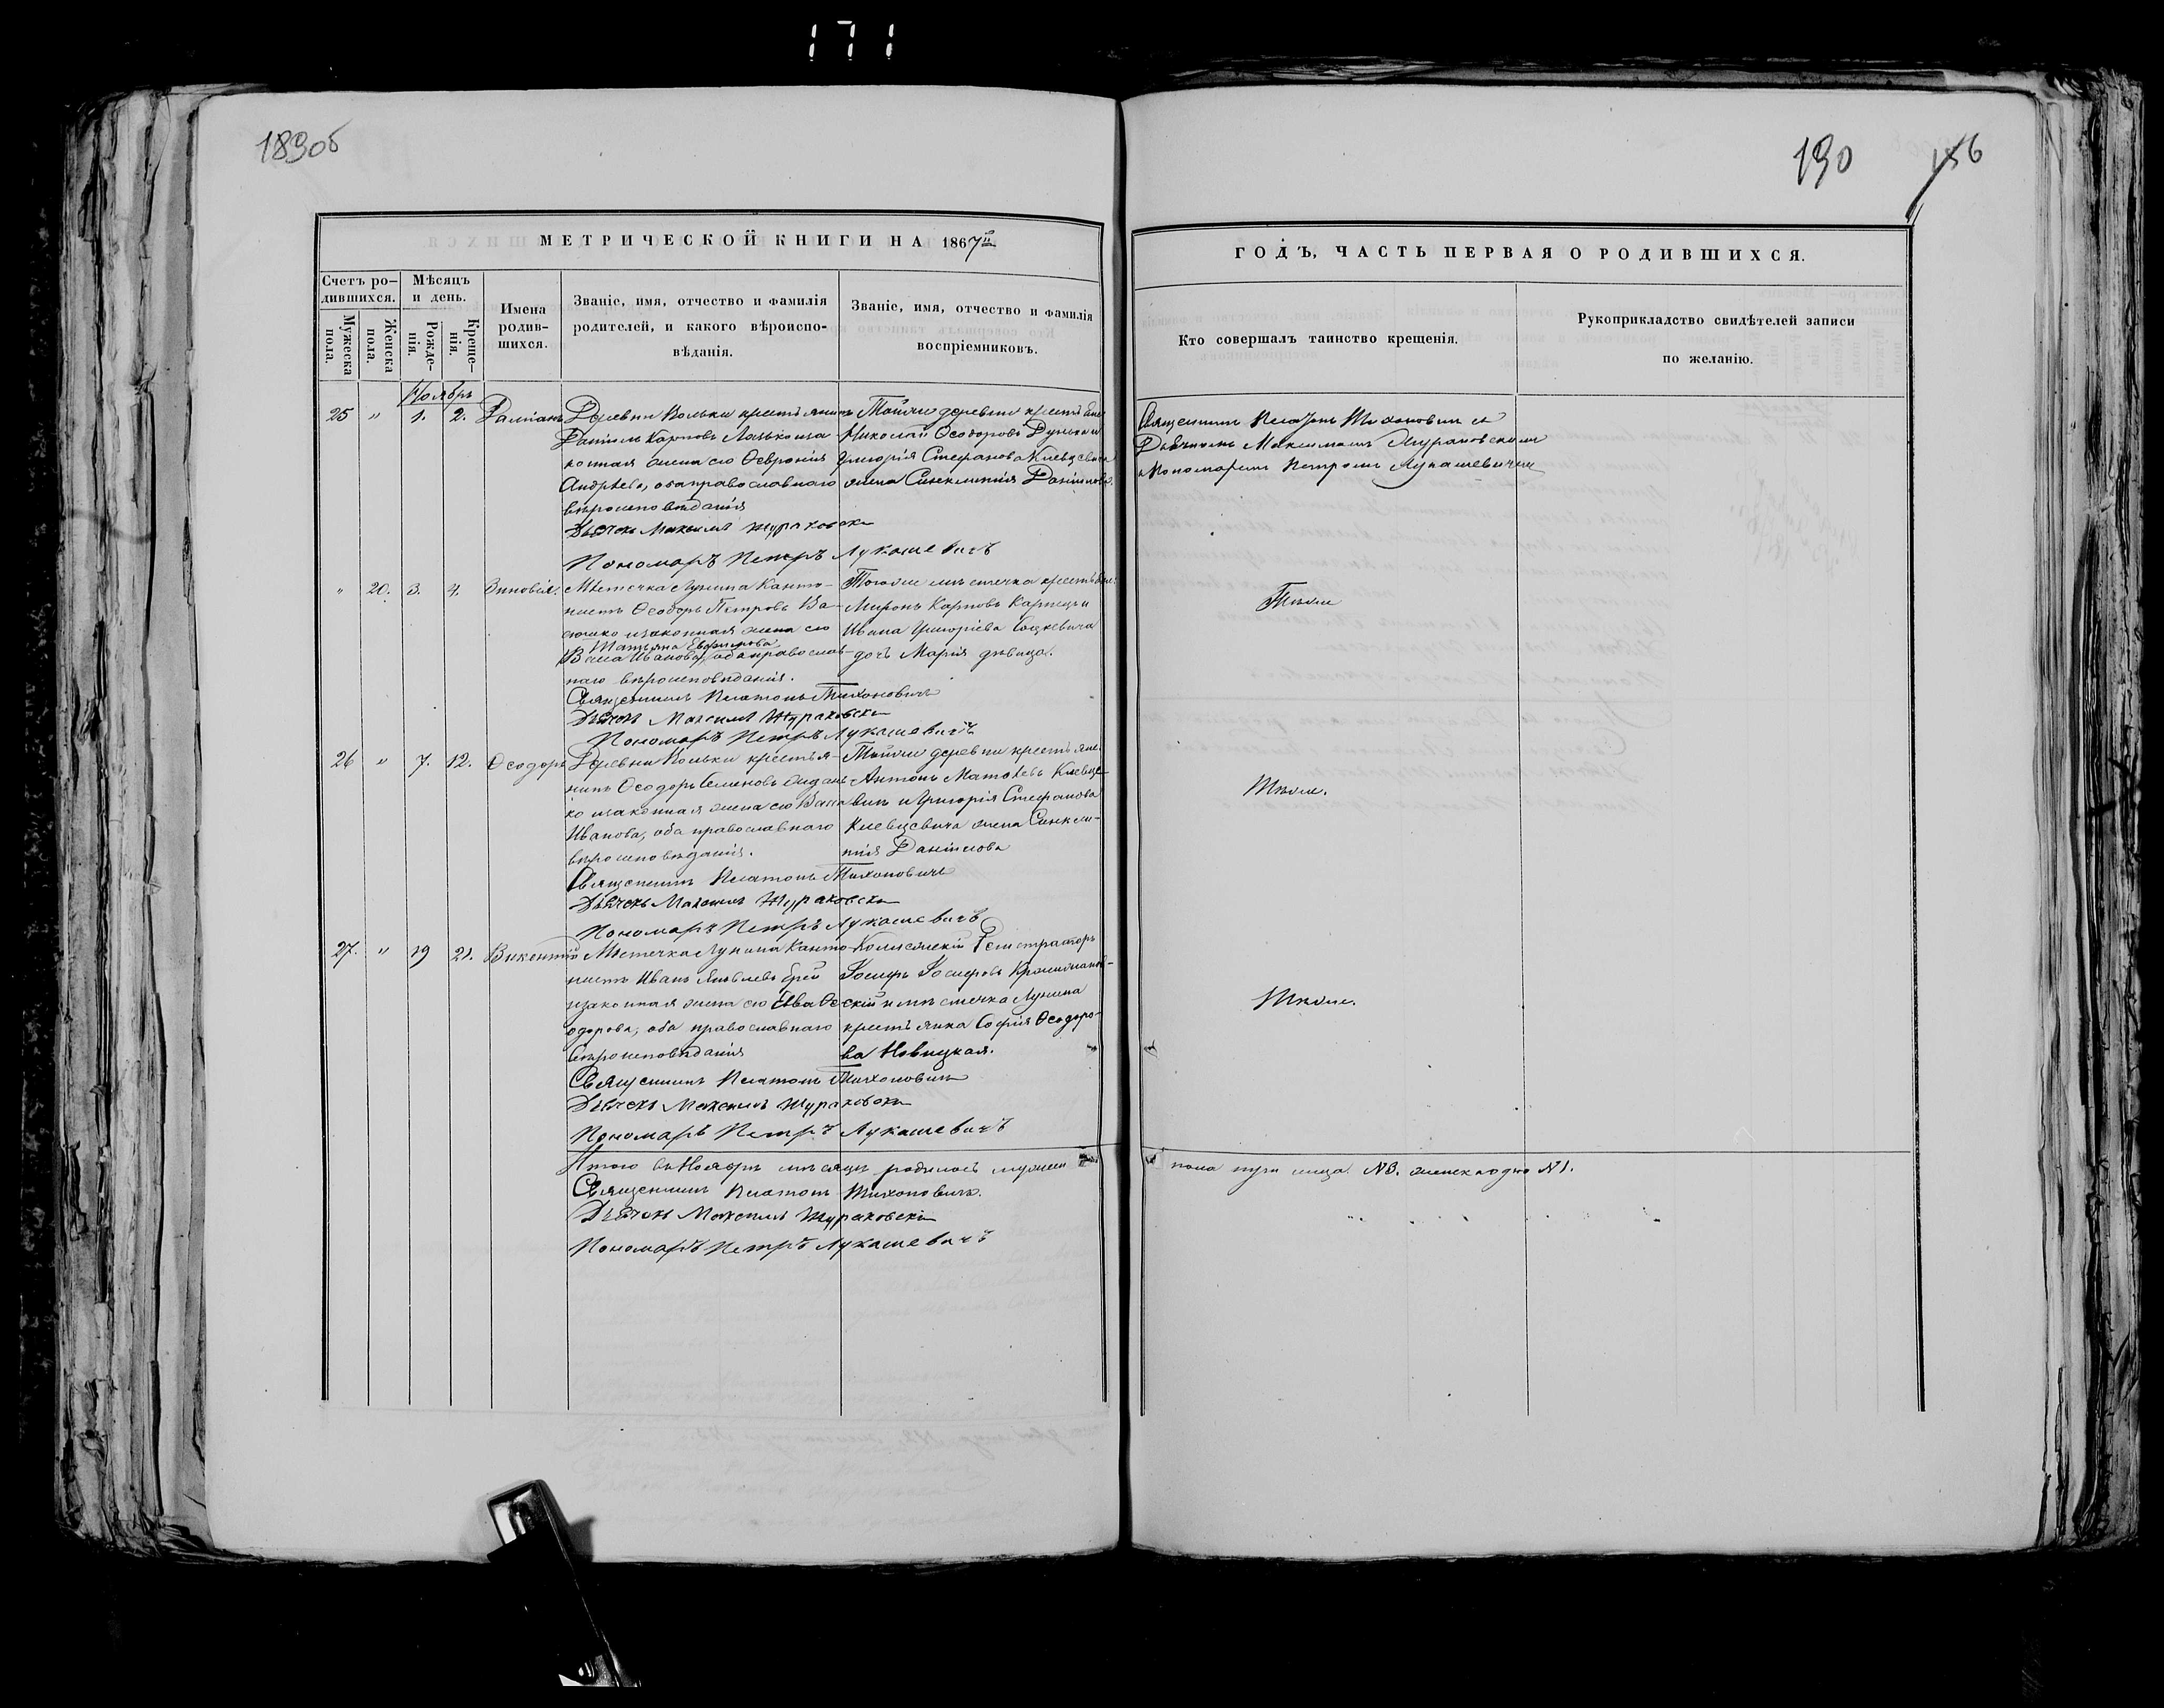 171
189об
190
186
МЕТРИЧЕСКОЙ КНИГИ НА 1867й
ГОДЪ, ЧАСТЬ ПЕРВАЯ О РОДИВШИХСЯ.
Счетъ ро-
дившихся.
Мѣсяцъ
и день.
Мужеска
пола.
Женска
пола.
Рожде-
нія.
Креще-
нія.
Имена
родив-
шихся.
Званіе, имя, отчество и фамилія
родителей, и какого вѣроиспо-
вѣданія.
Званіе, имя, отчество и фамилія
воспріемниковъ.
Кто совершалъ таинство крещенія.
Рукоприкладство свидѣтелей записи
по желанію.
Ноябрь
25 " 1. 2. Даміанъ
Деревни Вольки крестьянинъ
Даніилъ Карповъ
конная жена его Ѳевронія
Андреева, оба православнаго
вѣроисповѣданія
Дьячокъ Максимъ Жураховски
Пономаръ Петръ Лукашевичъ
Тойже деревни
Николай Ѳеодоровъ
Григорія Стефанова Киевцевича
жена Синклитія Даніилова.
Священникъ Платонъ Тихоновичъ съ
Дьячкомъ Максимомъ Жураховскимъ
Пономаремъ Петромъ Лукашевичемъ
" 20. 3. 4. Зиновія.
Мѣстечка Лунина Канто-
нистъ Ѳеодоръ Петровъ Ва-
изаконная жена его
Татьяна
Ивановы, оба православ-
наго вѣроисповѣданія.
Священникъ Платонъ Тихоновичъ
Дьячокъ Максимъ Жураховски
Пономаръ Петръ Лукашевичъ
Тогоже мѣстечка
Миронъ Карповъ Карпецъ и
Ивана Григоріева
дочь Марія дѣвица.
Тѣже
26 " 7. 12. Ѳеодоръ
Деревни Вольки крестья-
нинъ Ѳеодоръ Семеновъ
ко изаконная жена его Васса
Иванова, оба православнаго
вѣроисповѣданія.
Священникъ Платонъ Тихоновичъ
Дьячокъ Максимъ Жураховски
Пономаръ Петръ Лукашевичъ
Тойже деревни
Антонъ Матѳеевъ Киевце-
вичъ и Григорія Стефанова
Киевцевича жена Синкли-
тія Даніилова
Тѣже.
27. " 19 21. Викентій
Мѣстечка Лунина Канто-
нистъ Иванъ Яковлевъ
изаконная жена его Евва Ѳе-
одорова, оба православнаго
вѣроисповѣданія
Священникъ Платонъ Тихоновичъ
Дьячокъ Максимъ Жураховски
Пономаръ Петръ Лукашевичъ
Колежскій Регистраторъ
Іосифъ Іосифовъ
скій и мѣстечка Лунина
крестьянка Софія Ѳеодоро-
ва Новицкая.
Тѣже.
Итого въ Ноябрѣ мѣсяцѣ родилось мужеска пола три лица №3. женска одно №1.
Священникъ Платонъ Тихоновичъ.
Дьячокъ Максимъ Жураховски
Пономаръ Петръ Лукашевичъ